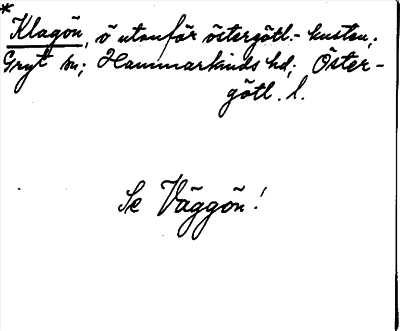 *
Klagön, ö utanför östergötl.-kusten;
Gryt sn; Hammarkinds hd; Öster-
götl. l.
Se Väggön!